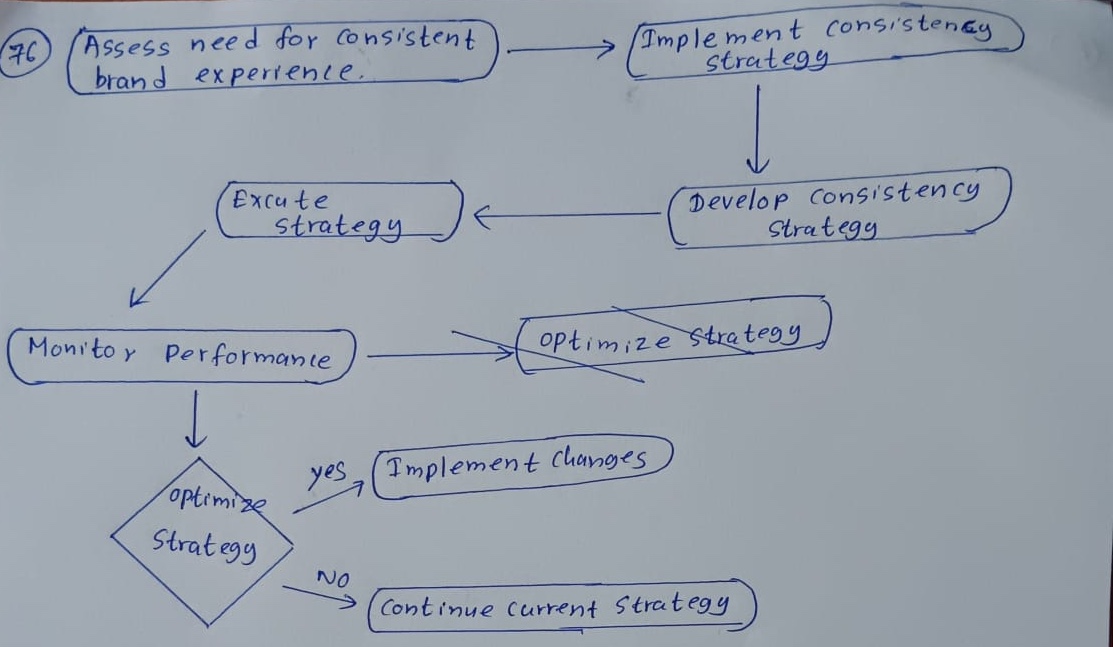 76
Assess need for consistent
brand experience.
Implement consistency
strategy
Develop consistency
strategy
Excute
strategy
Monitor performance
optimize strategy
optimize
strategy
yes
Implement changes
NO
continue current strategy